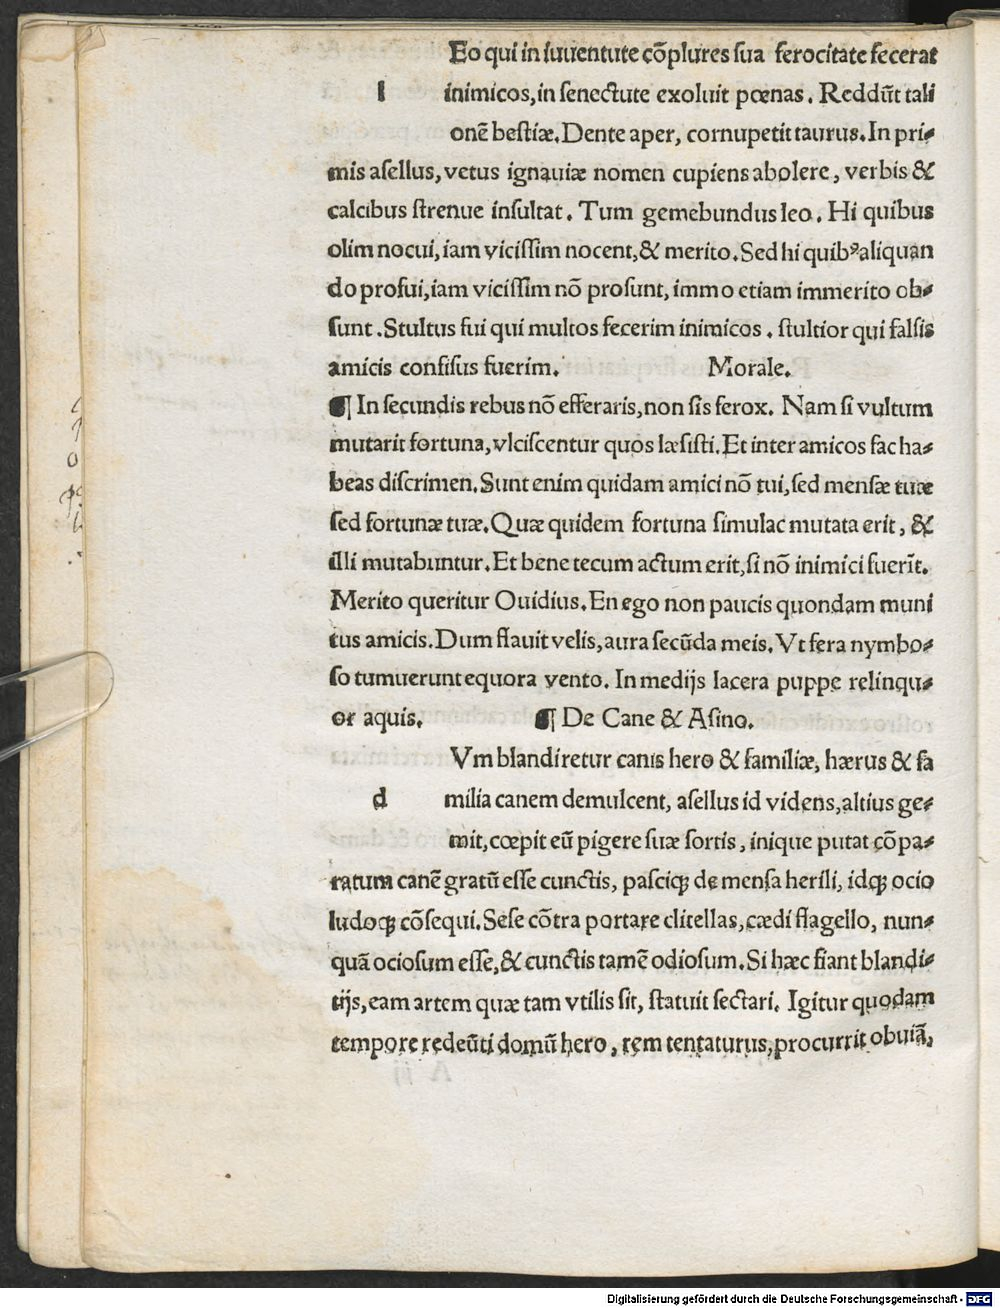 Eo qui in iuuentute cōplures ſua ferocitate fecerat
l inimicos, in ſenectute exoluit pœnas. Reddūt tali
onē beſtiæ. Dente aper, cornupetit taurus. In pri⸗
mis aſellus, vetus ignauiæ nomen cupiens abolere, verbis &
calcibus ſtrenue inſultat. Tum gemebundus leo. Hi quibus
olim nocui, iam viciſſim nocent, & merito. Sed hi quibꝰ aliquan
do profui, iam viciſſim nō proſunt, immo etiam immerito ob⸗
ſunt. Stultus fui qui multos fecerim inimicos. ſtultior qui falſis
amicis confiſus fuerim. Morale.
¶ In ſecundis rebus nō efferaris, non ſis ferox. Nam ſi vultum
mutarit fortuna, vlciſcentur quos læſiſti. Et inter amicos fac ha⸗
beas diſcrimen. Sunt enim quidam amici nō tui, ſed menſæ tuæ
ſed fortunæ tuæ. Quæ quidem fortuna ſimulac mutata erit, &
illi mutabuntur. Et bene tecum actum erit, ſi nō inimici fuerīt.
Merito queritur Ouidius. En ego non paucis quondam muni
tus amicis. Dum flauit velis, aura ſecūda meis. Vt fera nymbo⸗
ſo tumuerunt equora vento. In medijs lacera puppe relinqu⸗
or aquis. ¶ De Cane & Aſino.
Vm blandiretur canis hero & familiæ, hærus & fa
d milia canem demulcent, aſellus id videns, altius ge⸗
mit, cœpit eū pigere ſuæ ſortis, inique putat cōpa⸗
ratum canē gratū eſſe cunctis, paſciqꝫ de menſa herili, idqꝫ ocio
ludoqꝫ cōſequi. Seſe cōtra portare clitellas, cædi flagello, nun⸗
quā ocioſum eſſe, & cunctis tamē odioſum. Si hæc fiant blandi⸗
tijs, eam artem quæ tam vtilis ſit, ſtatuit ſectari. Igitur quodam
tempore redeūti domū hero, rem tentaturus, procurrit obuiā,
Digitalisierung gefördert durch die Deutsche Forschungsgemeinschaft - DFG